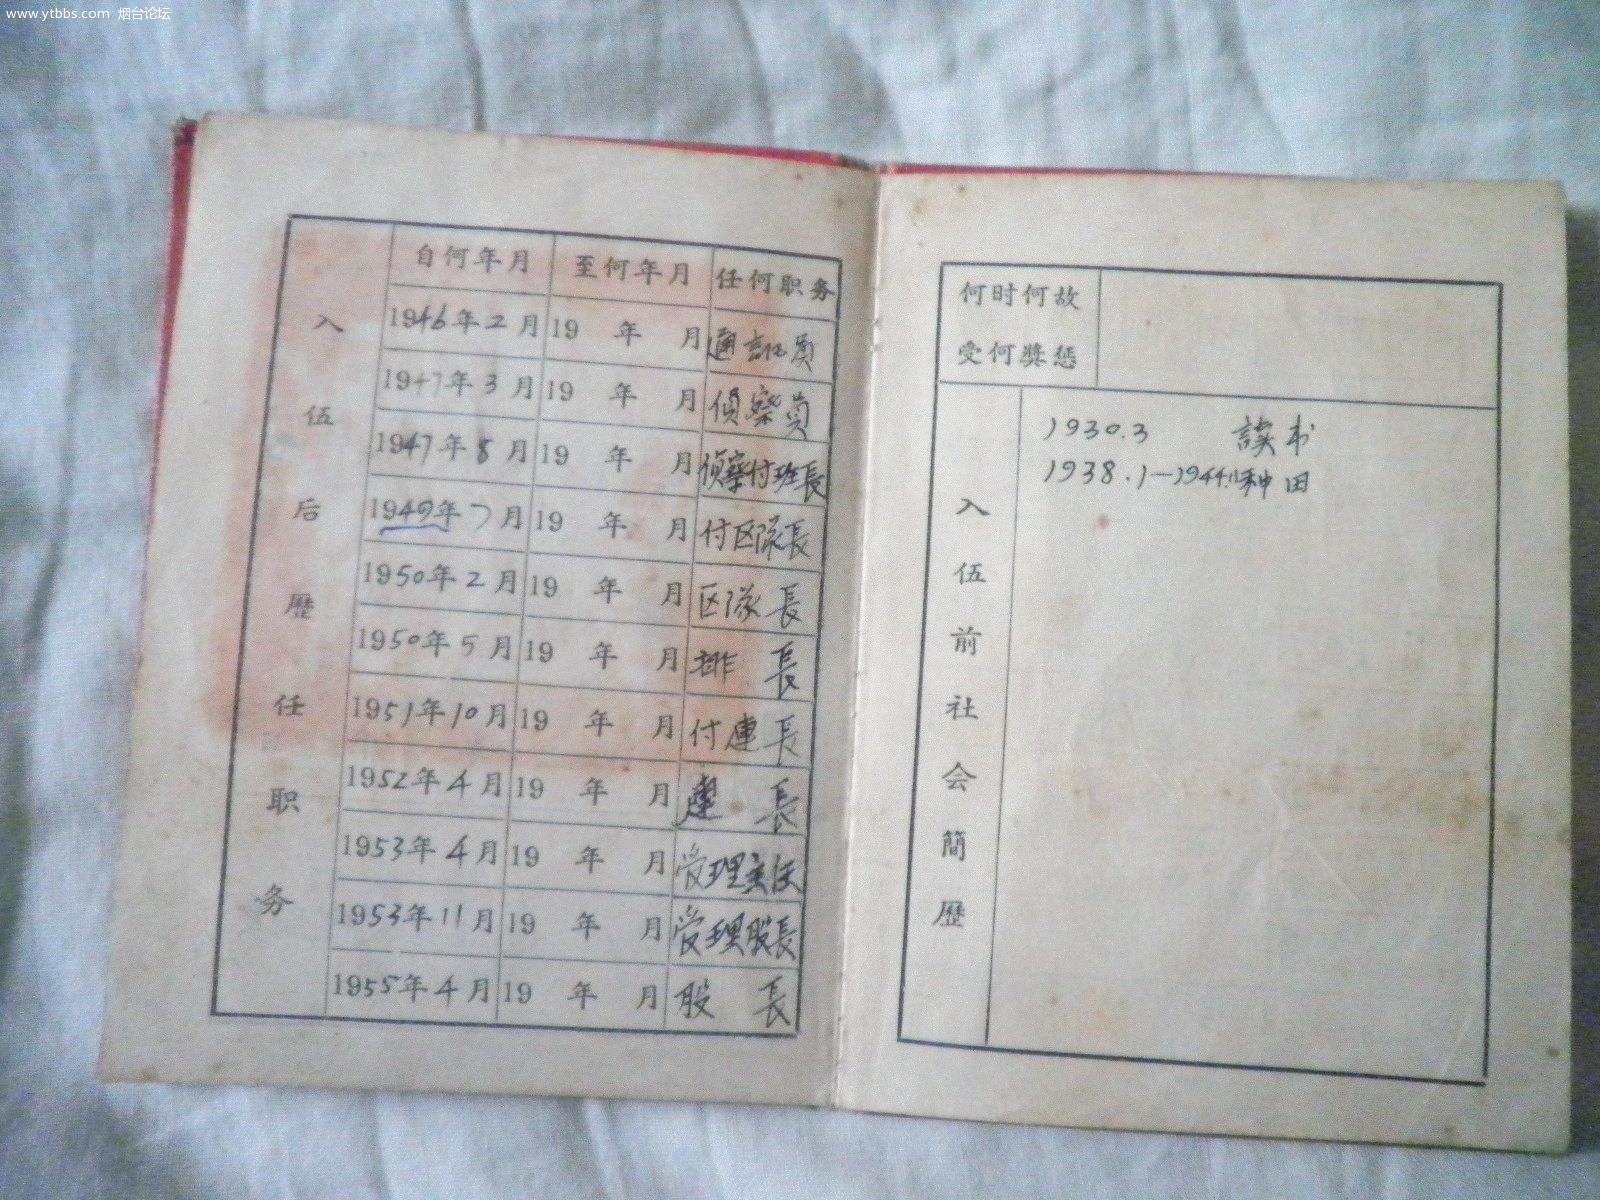 www.ytbbs.com 烟台论坛
入伍后歷任职务
自何年月 至何年月 任何职务
1946年2月 19 年 月 通訊员
1947年3月 19 年 月 偵察員
1947年8月 19 年 月 偵察付班長
1949年7月 19 年 月 付区隊長
1950年2月 19 年 月 区隊長
1950年5月 19 年 月 排長
1951年10月 19 年 月 付連長
1952年4月 19 年 月 連長
1953年4月 19 年 月 受理主任
1953年11月 19 年 月 受理股長
1955年4月 19 年 月 股長
何时何故
受何獎惩
入伍前社会簡歷
1930.3 读书
1938.1—1944.种田